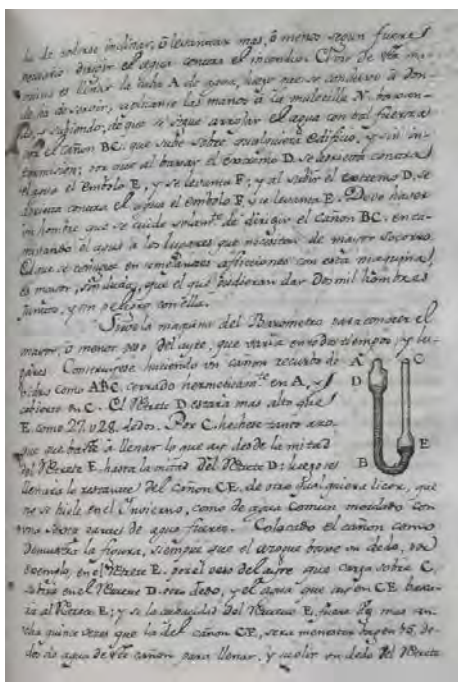 de de poderse inclinar, ô levantar mas, ô menos segun fuere
necesario dirigir el agua contra el incendio. El uso de esta ma-
quina es llenar la tuba A de agua, luego
de ha de servir, aplicante las manos â la muletilla N. baxan-
do, y subiendo, de que se sigue arrojar el agua con tal fuerza
por el cañon BC. que sube sobre qualquiera edificio, y sin in-
termision; por que al baxar el extremo D. se deprime contra el
el embolo E, y se levanta F; y al subir el extremo D. se
contra el agua el embolo F, y se levanta E. Deve haver
un hombre que se cuide de dirigir el cañon BC. enca-
minando el agua a los lugares que necesitan de mayor socorro.
El que se consigue en semejantes aflicciones con esta maquina,
es mayor, sin duda, que el que pudieran dar Dos mil hombres
juntos, y con peligro con ella.
Sirve la maquina del Barometro para conocer el
mayor, ô menor peso del ayre, que varia en todos tiempos, y lu-
gares. Construyese haciendo un cañon recurbo de
bidrio como ABC. cerrado hermeticam.te en A, y
abierto en C. El D estarà mas alto que
E. como 27. û 28. dedos. Por C. hechese tanto azo-
gue que baste a llenar lo que ay desde la mitad
del E. hasta la mitad del D: luego se
llenarà lo restante del cañon CE. de otro qualquiera licor, que
no se hiele en el Invierno, como de agua comun mezclada con
una sexta parte de agua fuerte. Colocado el cañon como
demuestra la figura, siempre que el azogue baxe un dedo, por
exemplo, en el E. por el peso del ayre que carga sobre C.
subirà en el D. otro dedo, y el agua que ay en CE baxa-
râ al E; y si la capacidad del E, fuere mas an-
cha quince vezes que la del cañon CE, serâ menester baxen 15. de-
dos de agua de este cañon para llenar, y un dedo del
A C
D
E
B